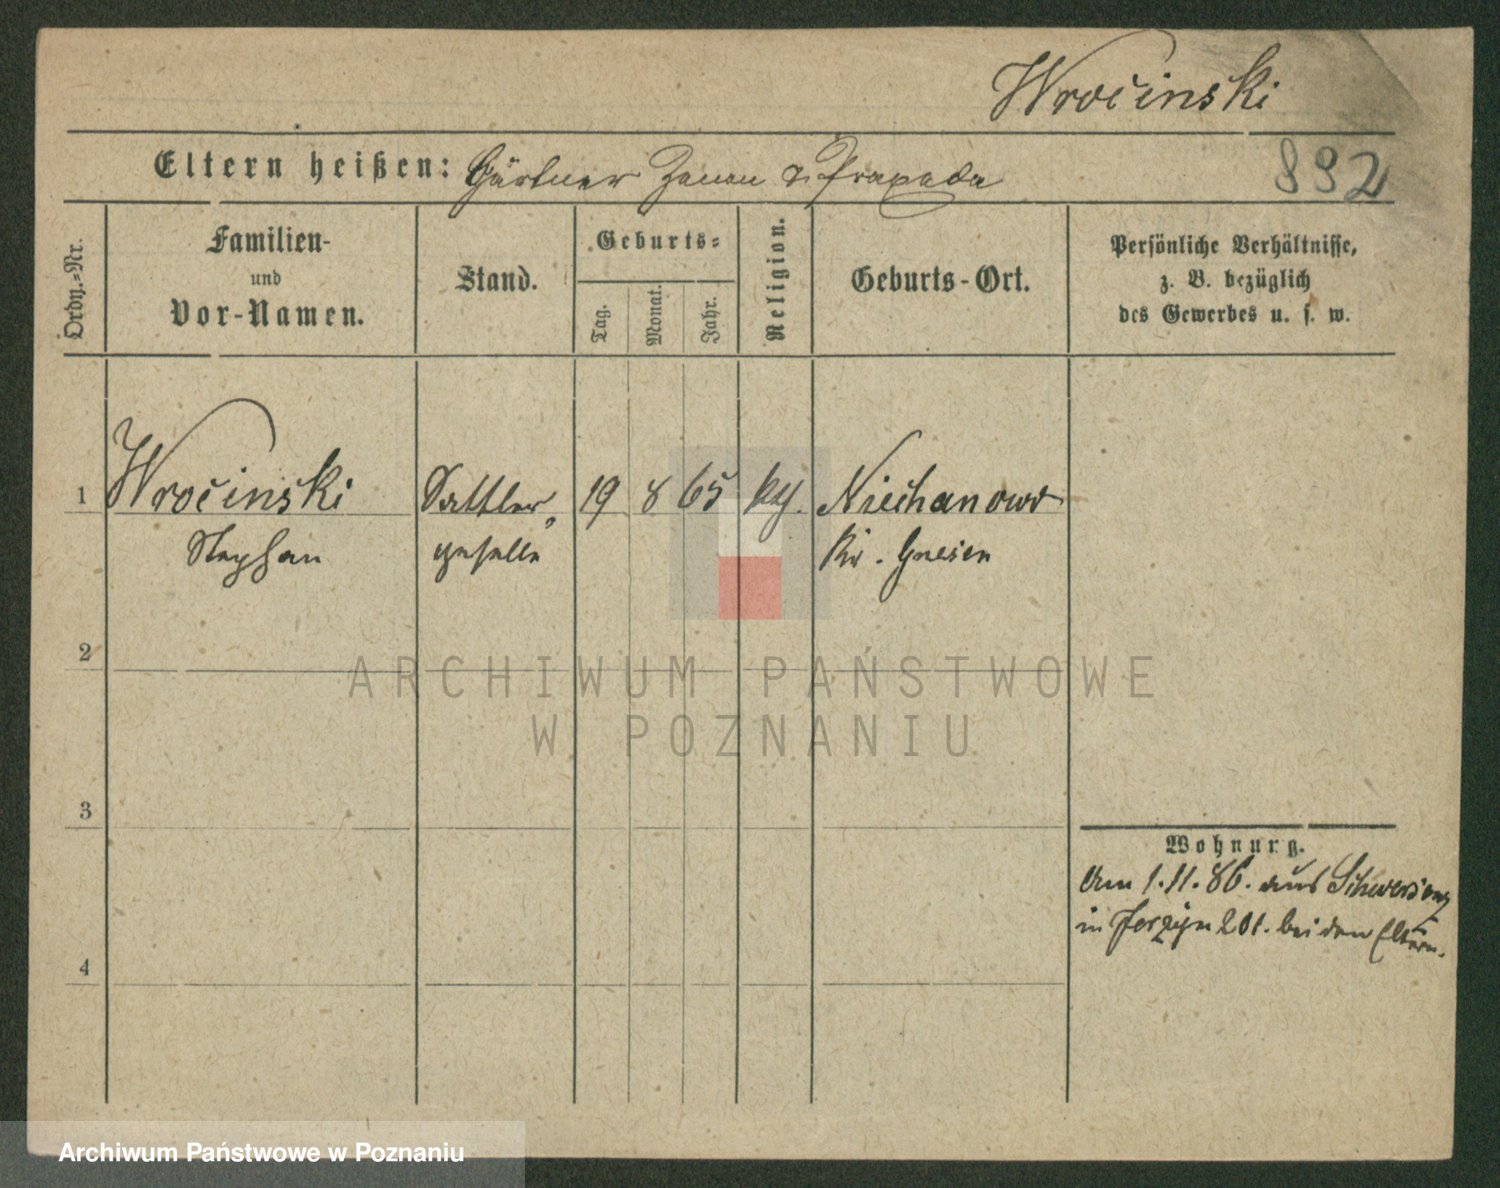 Wročinski
Eltern heißen: Gärtner Zenon & Praxeda
892
Ordn.-Nr.
Familien-
und
Vor-Namen.
Stand.
Geburts-
Tag.
Monat.
Jahr.
Religion.
Geburts-Ort.
Persönliche Verhältnisse,
z. B. bezüglich
des Gewerbes u. s. w.
1 Wročinski Sattler- 19 8 65 kth. Niechanowo
Stephan geselle Kr. Gnesen
2
ARCHIWUM PAŃSTWOWE
W POZNANIU
3
Wohnung.
Am 1.11.86. aus Schwersenz
in Jerzyn 201. bei den Eltern.
4
Archiwum Państwowe w Poznaniu